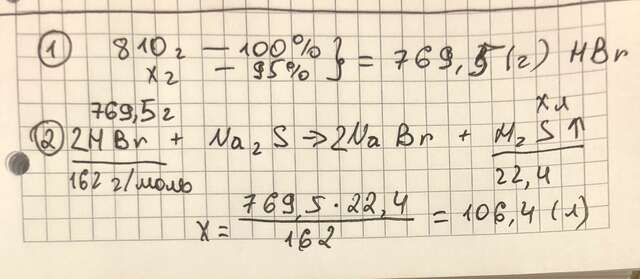 ① 810г – 100% } = 769,5 (г) HBr
xг – 95%
769,5г xл
② 2HBr + Na₂S ⇒ 2NaBr + H₂S↑
162 г/моль 22,4
x = 769,5 · 22,4 / 162 = 106,4 (л)